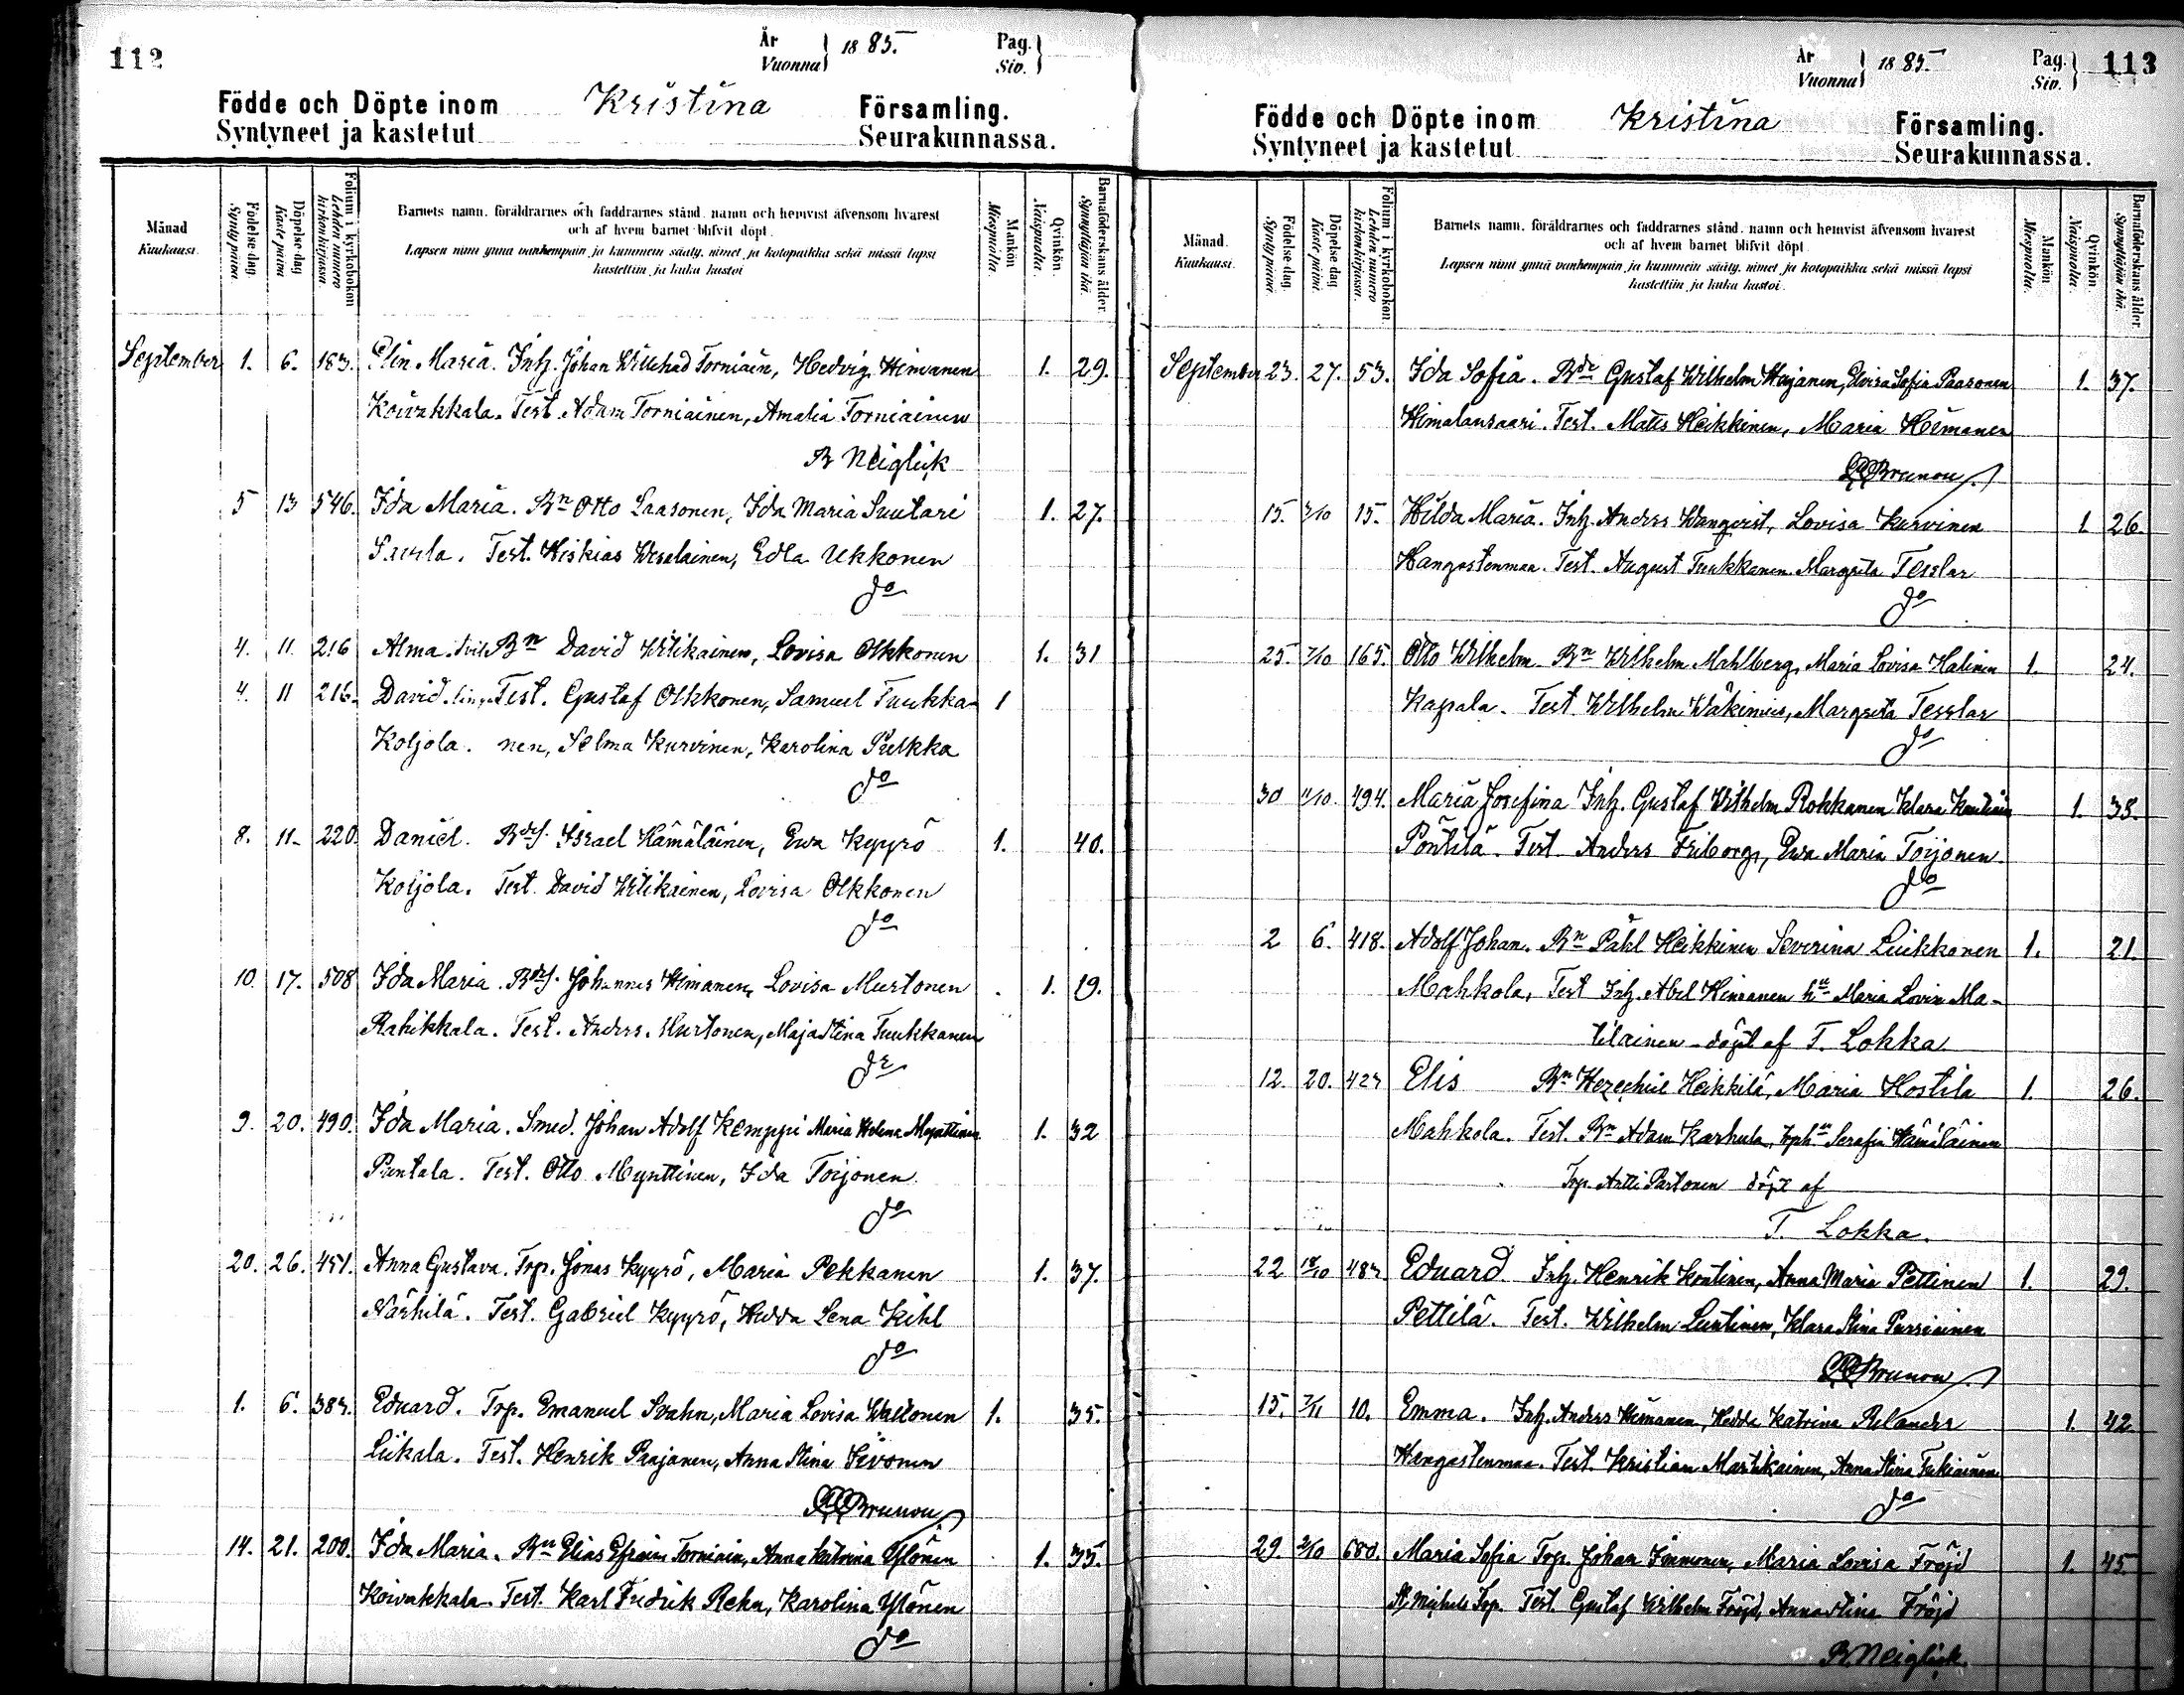 112
År
Vuonna } 1885.
Pag.
Siv.
Födde och Döpte inom Kristina Församling.
Syntyneet ja kastetut Seurakunnassa.
Månad
Kuukausi.
Födelse dag.
Synty päivä.
Döpelse dag
Kaste päivä
Folium i kyrkoboken
Lehden numero kirkonkirjassa.
Barnets namn, föräldrarnes och faddrarnes stånd, namn och hemvist äfvensom hvarest
och af hvem barnet blifvit döpt.
Lapsen nimi ynnä vanhempain ja kummein sääty, nimet ja kotopaikka sekä missä lapsi
kastettiin ja kuka kastoi
Mankön
Miespuolta.
Qvinkön.
Naispuolta.
Barnaföderskans ålder.
Synnyttäjän ikä.
September 1. 6. 183. Elin Maria. Inh. Johan Willehad Torniain, Hedvig Himanen 1. 29.
Koivakkala. Test. Adam Torniainen, Amalia Torniainen
B Neiglick
5 13 546. Ida Maria. Bn Otto Laasonen, Ida Maria Suutari 1. 27.
Suurla. Test. Hiskias Wesalainen, Edla Ukkonen
do
4. 11 216 Alma. Bn David Witikainen, Lovisa Olkkonen 1. 31
4. 11 216. David. Test. Gustaf Olkkonen, Samuel Tuukka- 1
Koljola. nen, Selma Kurvinen, Karolina Pulkka
do
8. 11. 220. Daniel. Bds. Israel Hämäläinen, Ewa Kyyrö 1. 40.
Koljola. Test. David Witikainen, Lovisa Olkkonen
do
10. 17. 508 Ida Maria. Bds. Johannes Himanen, Lovisa Murtonen 1. 19.
Rahikkala. Test. Anders Murtonen, Maja Stina Tuukkanen
do
9. 20. 490. Ida Maria. Smed. Johan Adolf Kemppi Maria Helena Mynttinen 1. 32
Puntala. Test. Otto Mynttinen, Ida Toijonen
do
20. 26. 451. Anna Gustava. Torp. Jonas Kyyrö, Maria Pekkanen 1. 37.
Närhilä. Test. Gabriel Kyyrö, Hedda Lena Kihl
do
1. 6. 387. Eduard. Torp. Emanuel Svahn, Maria Lovisa Waltonen 1. 35.
Liikala. Test. Henrik Paajanen, Anna Stina Sivonen
Brunou
14. 21. 200. Ida Maria. Bn Elias Efraim Torniain, Anna Katrina Ylönen 1. 35.
Koivakkala Test. Karl Fredrik Rehn, Karolina Ylönen
do
År
Vuonna } 1885.
Pag.
Siv. } 113
Födde och Döpte inom Kristina Församling.
Syntyneet ja kastetut Seurakunnassa.
Månad.
Kuukausi.
Födelse dag.
Synty päivä.
Döpelse dag
Kaste päivä.
Folium i kyrkoboken.
Lehden numero kirkonkirjassa.
Barnets namn, föräldrarnes och faddrarnes stånd, namn och hemvist äfvensom hvarest
och af hvem barnet blifvit döpt.
Lapsen nimi ynnä vanhempain ja kummein sääty, nimet ja kotopaikka sekä missä lapsi
kastettiin ja kuka kastoi.
Mankön
Miespuolta.
Qvinkön.
Naispuolta.
Barnaföderskans ålder.
Synnyttäjän ikä.
September 23. 27. 53. Ida Sofia. Bde Gustaf Wilhelm Hajanen, Lovisa Sofia Paasonen 1. 37.
Himalansaari. Test. Matts Heikkinen, Maria Himanen
Brunou
15. 4/10 15. Hilda Maria. Inh. Anders Wanqvist, Lovisa Kurvinen 1. 26.
Hangastenmaa. Test. August Tuukkanen Margreta Tesslar
do
25. 7/10 165. Otto Wilhelm Bn Wilhelm Mahlberg, Maria Lovisa Halinen 1. 24.
Kapala. Test. Wilhelm Wäkimies, Margreta Tesslar
do
30 11/10. 494. Maria Josefina Inh. Gustaf Wilhelm Rokkanen Klara 1. 38.
Pöntilä. Test Anders Friborg, Ewa Maria Toijonen
do
2 6. 418. Adolf Johan. Bn Påhl Heikkinen Severina Liukkonen 1. 21.
Mahkola, Test Inh. Abel Himanen hu Maria Lovisa Ma-
tilainen döpt af T. Lokka
12. 20. 427 Elis Bn Hezechiel Heikkilä, Maria Hostila 1. 26.
Mahkola. Test. Bn Adam Karhula, Serafia Hämäläinen
Torp. Antti Partonen döpt af
T. Lokka.
22 18/10 487 Eduard Inh. Henrik Kontinen, Anna Maria Pettinen 1. 29.
Pettilä. Test. Wilhelm Luntinen, Klara Stina Pursiainen
Brunou
15. 7/11 10. Emma. Inh. Anders Himanen, Hedda Katrina Relander 1. 42
Hangastenmaa. Test. Kristian Martikainen, Anna Stina Tukiainen
do
29. 2/10 680. Maria Sofia Torp. Johan Immonen, Maria Lovisa Fröjd 1. 45
St Michels Torp. Test Gustaf Wilhelm Fröjd, Anna Stina Fröjd
B. Neiglick